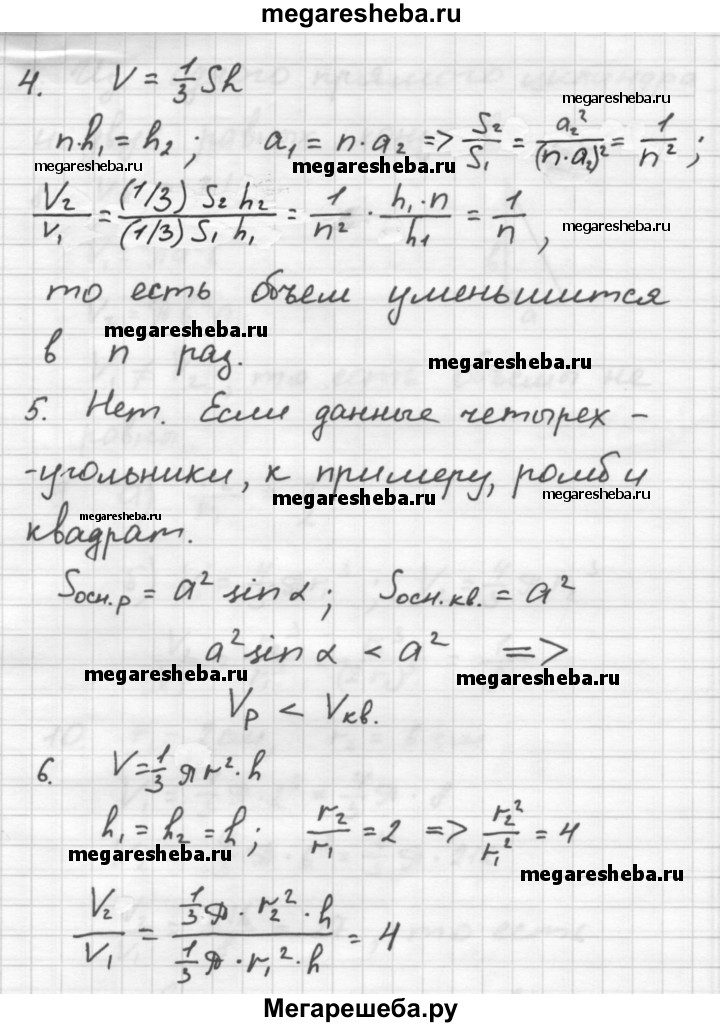 megaresheba.ru
4. V = 1/3 Sh
megaresheba.ru
n·h₁ = h₂; a₁ = n·a₂ => S₂/S₁ = a₂²/(n·a₂)² = 1/n²;
megaresheba.ru megaresheba.ru
V₂/V₁ = (1/3) S₂ h₂/(1/3) S₁ h₁ = 1/n² · h₁·n/h1 = 1/n,
megaresheba.ru
то есть объем уменьшится
megaresheba.ru
в n раз.
megaresheba.ru
5. Нет. Если данные четырех-
-угольники, к примеру, ромб и
megaresheba.ru megaresheba.ru
megaresheba.ru
квадрат.
Sосн.р = a² sin α; Sосн.кв. = a²
a² sin α < a² =>
megaresheba.ru megaresheba.ru
Vр < Vкв.
6. V = 1/3 πr²·h
h₁ = h₂ = h; r₂/r₁ = 2 => r₂²/r₁² = 4
megaresheba.ru megaresheba.ru
V₂/V₁ = 1/3 π·r₂²·h/1/3 π·r₁²·h = 4
Мегарешеба.ру